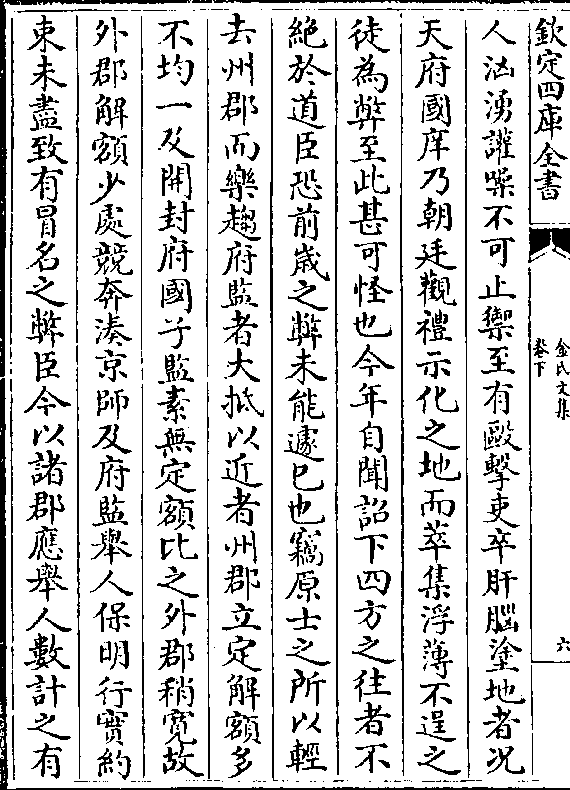 欽定四庫全書
金氏文集
卷下
六
人洶湧讙噪不可止禦至有毆擊吏卒肝腦塗地者况
天府國庠乃朝廷觀禮示化之地而萃集浮薄不逞之
徒為弊至此甚可怪也今年自聞詔下四方之往者不
絶於道臣恐前歲之弊未能遽已也竊原士之所以輕
去州郡而樂趨府監者大抵以近者州郡立定解額多
不均一及開封府國子監素無定額比之外郡稍寛故
外郡解額少處競奔湊京師及府監舉人保明行實約
束未盡致有冒名之弊臣今以諸郡應舉人數計之有